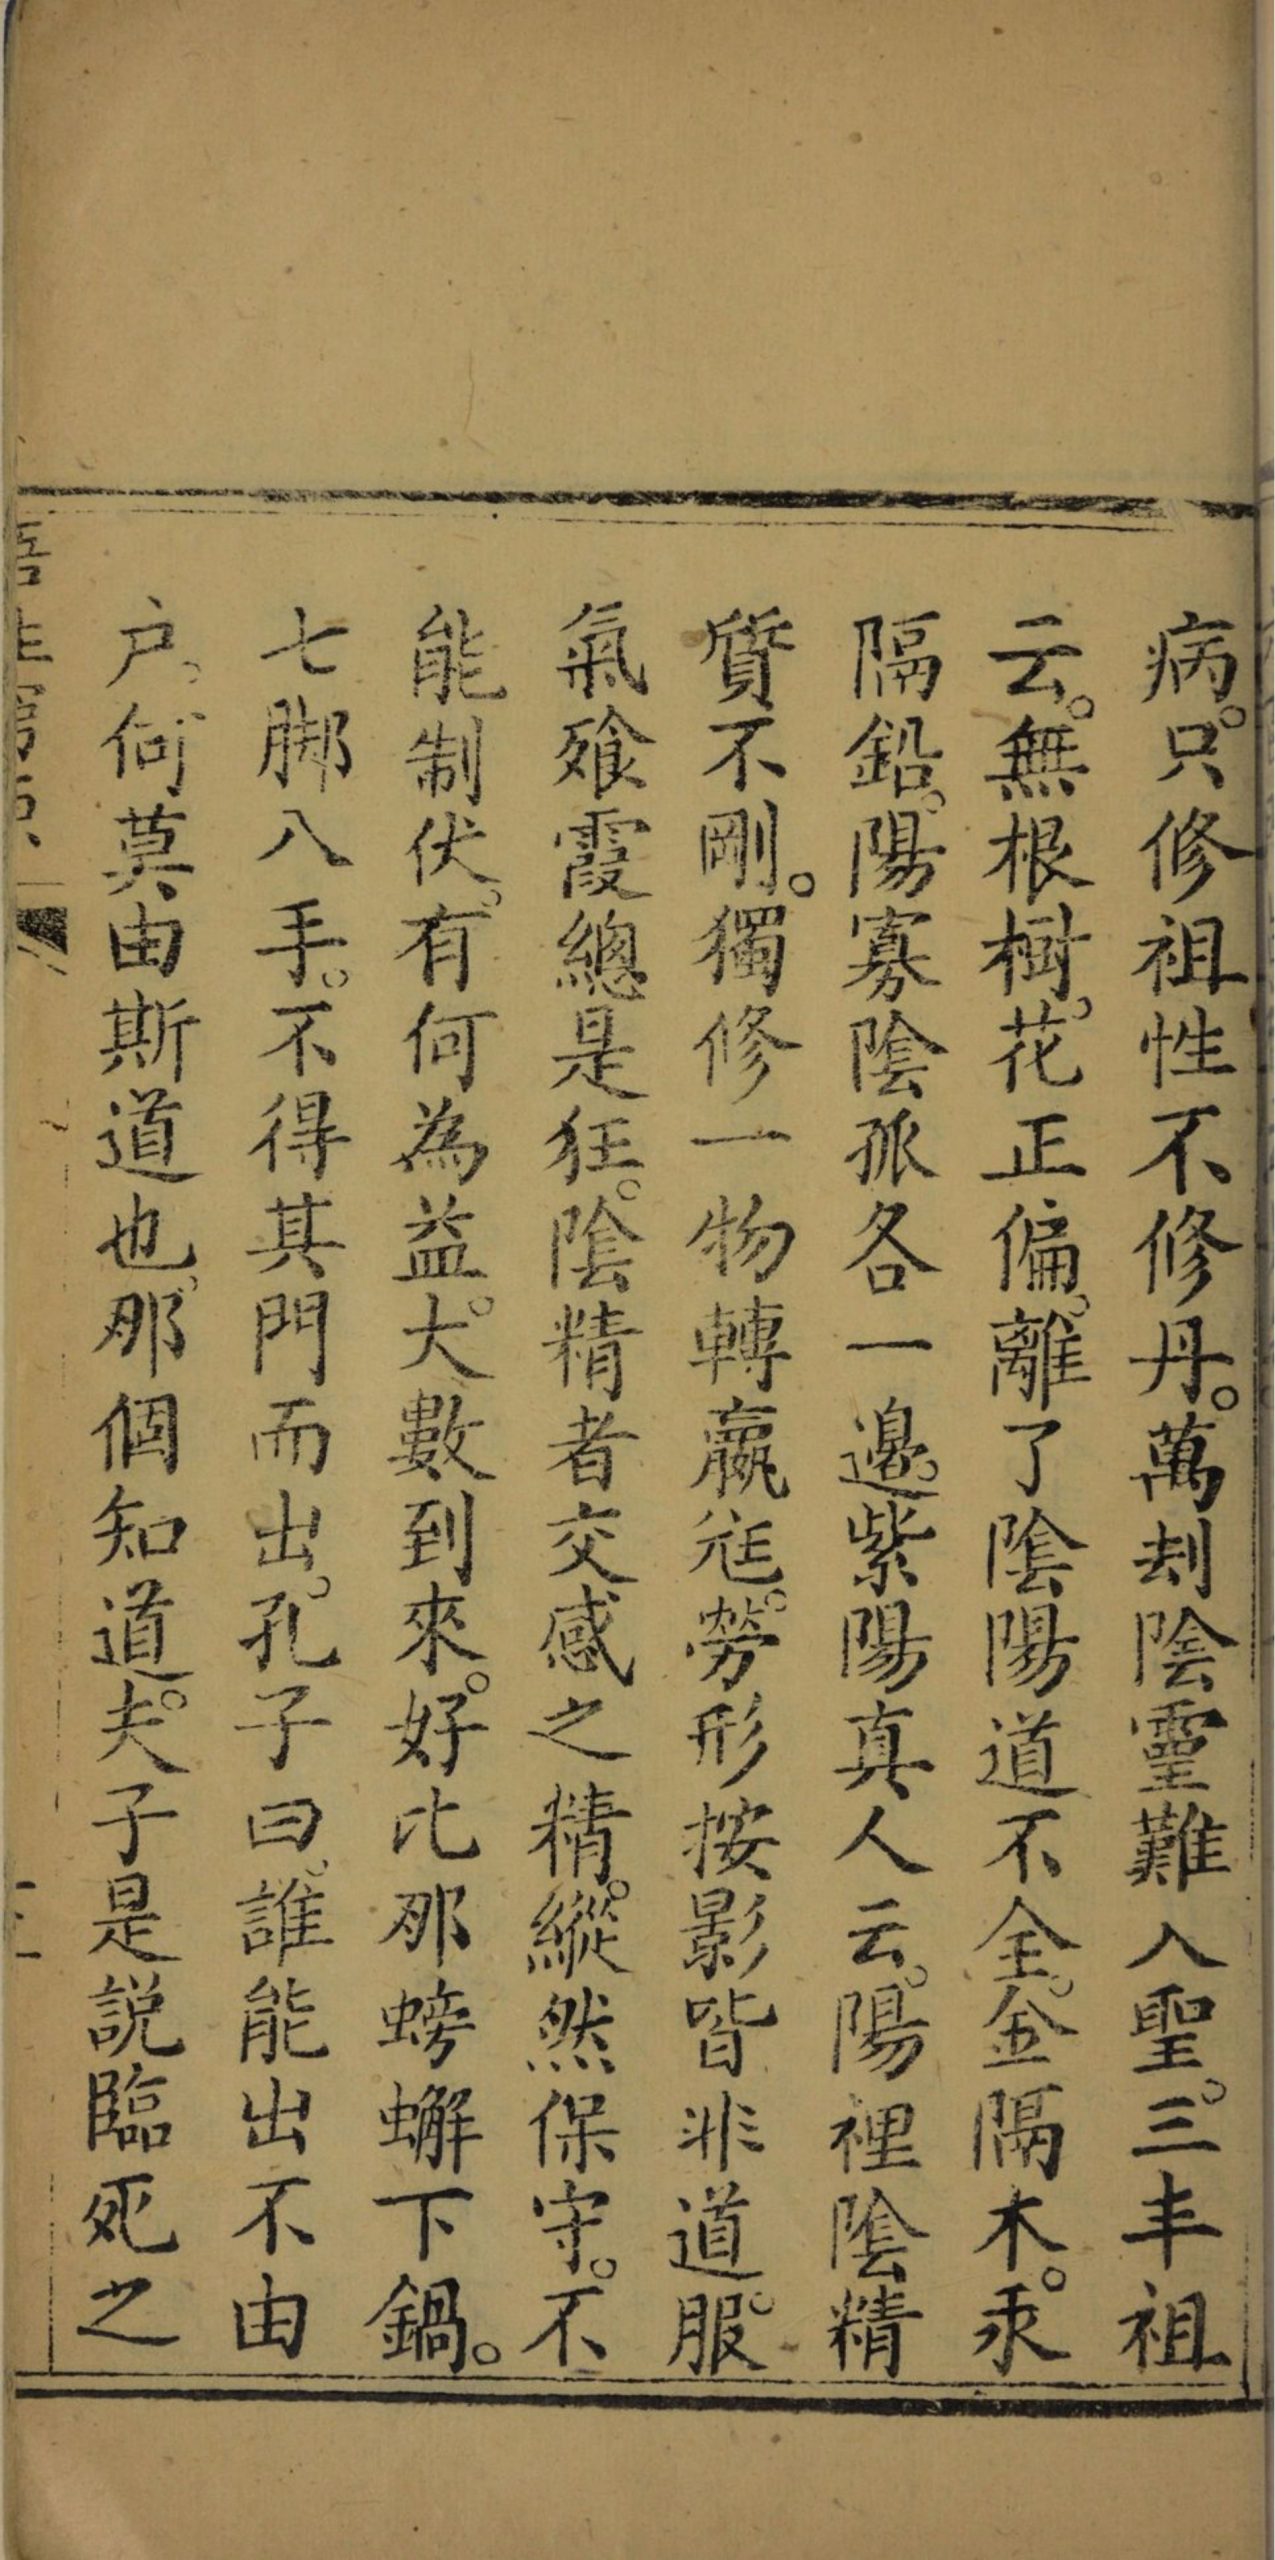 病。只修祖性不修丹。萬刦陰靈難入聖。三丰祖
云。無根樹。花正偏。離了陰陽道不全。金隔木。汞
隔鉛。陽寡陰孤各一邊。紫陽真人云。陽裡陰精
質不剛。獨修一物轉羸尫。勞形按影皆非道。服
氣飱霞總是狂。陰精者交感之精。縱然保守。不
能制伏。有何為益。大數到來。好比那螃蠏下鍋。
七脚八手。不得其門而出。孔子曰。誰能出不由
户。何莫由斯道也。那個知道。夫子是説臨死之